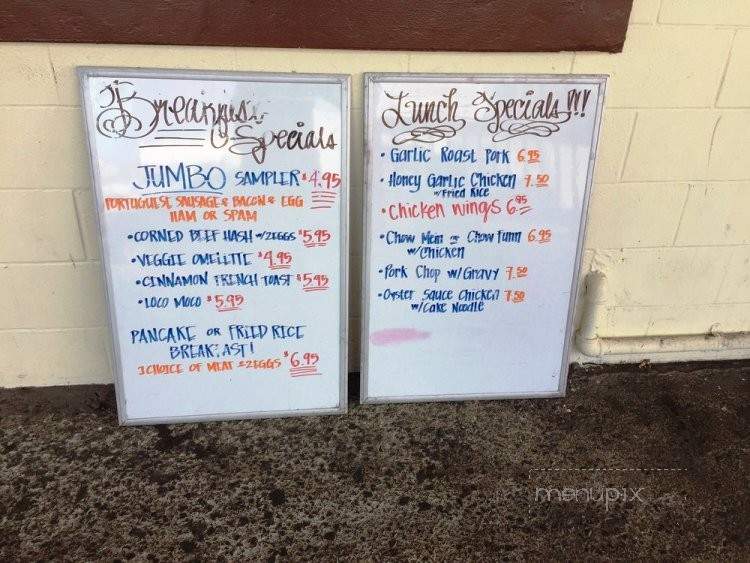 Breakfast
Specials
JUMBO SAMPLER $4.95
PORTUGUESE SAUSAGE & BACON & EGG
HAM OR SPAM
•CORNED BEEF HASH W/2EGGS $5.95
•VEGGIE OMELETTE $4.95
•CINNAMON FRENCH TOAST $5.95
•LOCO MOCO $5.95
PANCAKE OR FRIED RICE
BREAKFAST!
1 CHOICE OF MEAT 2EGGS $6.95
Lunch Specials!!!
•Garlic Roast Pork 6.95
•Honey Garlic Chicken 7.50
w/Fried Rice
•Chicken wings 6.95
•Chow Mein or Chow Funn 6.95
w/Chicken
•Pork Chop w/Gravy 7.50
•Oyster Sauce Chicken 7.50
w/Cake Noodle
menupix